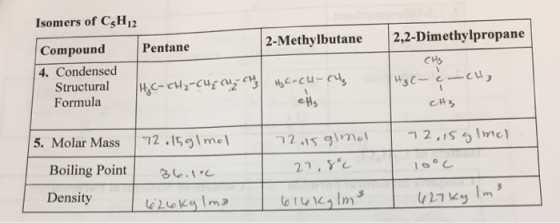 Isomers of C₅H₁₂
Compound Pentane 2-Methylbutane 2,2-Dimethylpropane
CH₃
4. Condensed
Structural H₃C-CH₂-CH₂-CH₂-CH₃ H₃C-CH-CH₃ H₃C-C-CH₃
Formula CH₃ CH₃
5. Molar Mass 72.15g/mol 72.15 g/mol 72.15 g/mol
Boiling Point 36.1°C 27.8°C 10°C
Density 626kg/m³ 616kg/m³ 627kg/m³